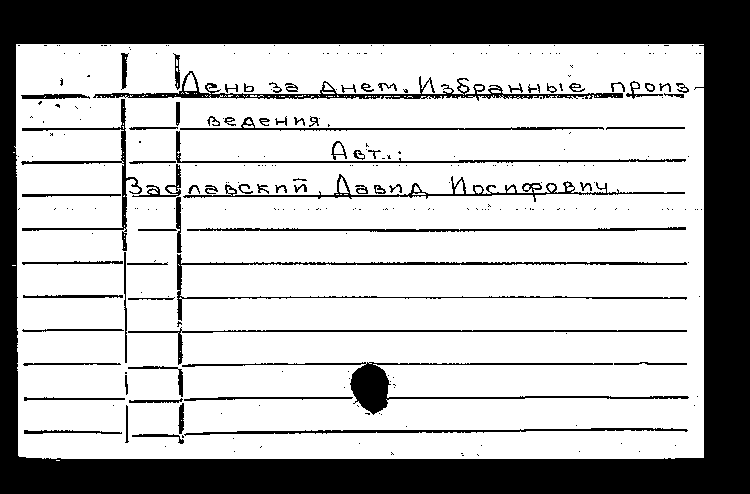 День за днем. Избранные произ-
ведения.
Авт.:
Заславский, Давид Иосифович.